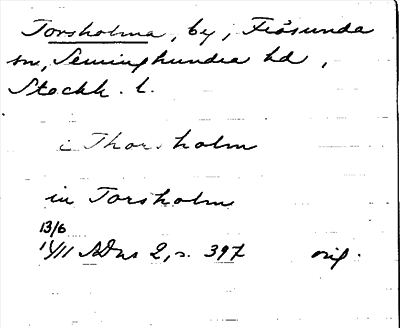 Torsholma, by, Frösunda
sn, Seminghundra hd,
Stockh. l.
i Thorsholm
in Torsholm
13/6
11/11 SDns 2, s. 397 orig.